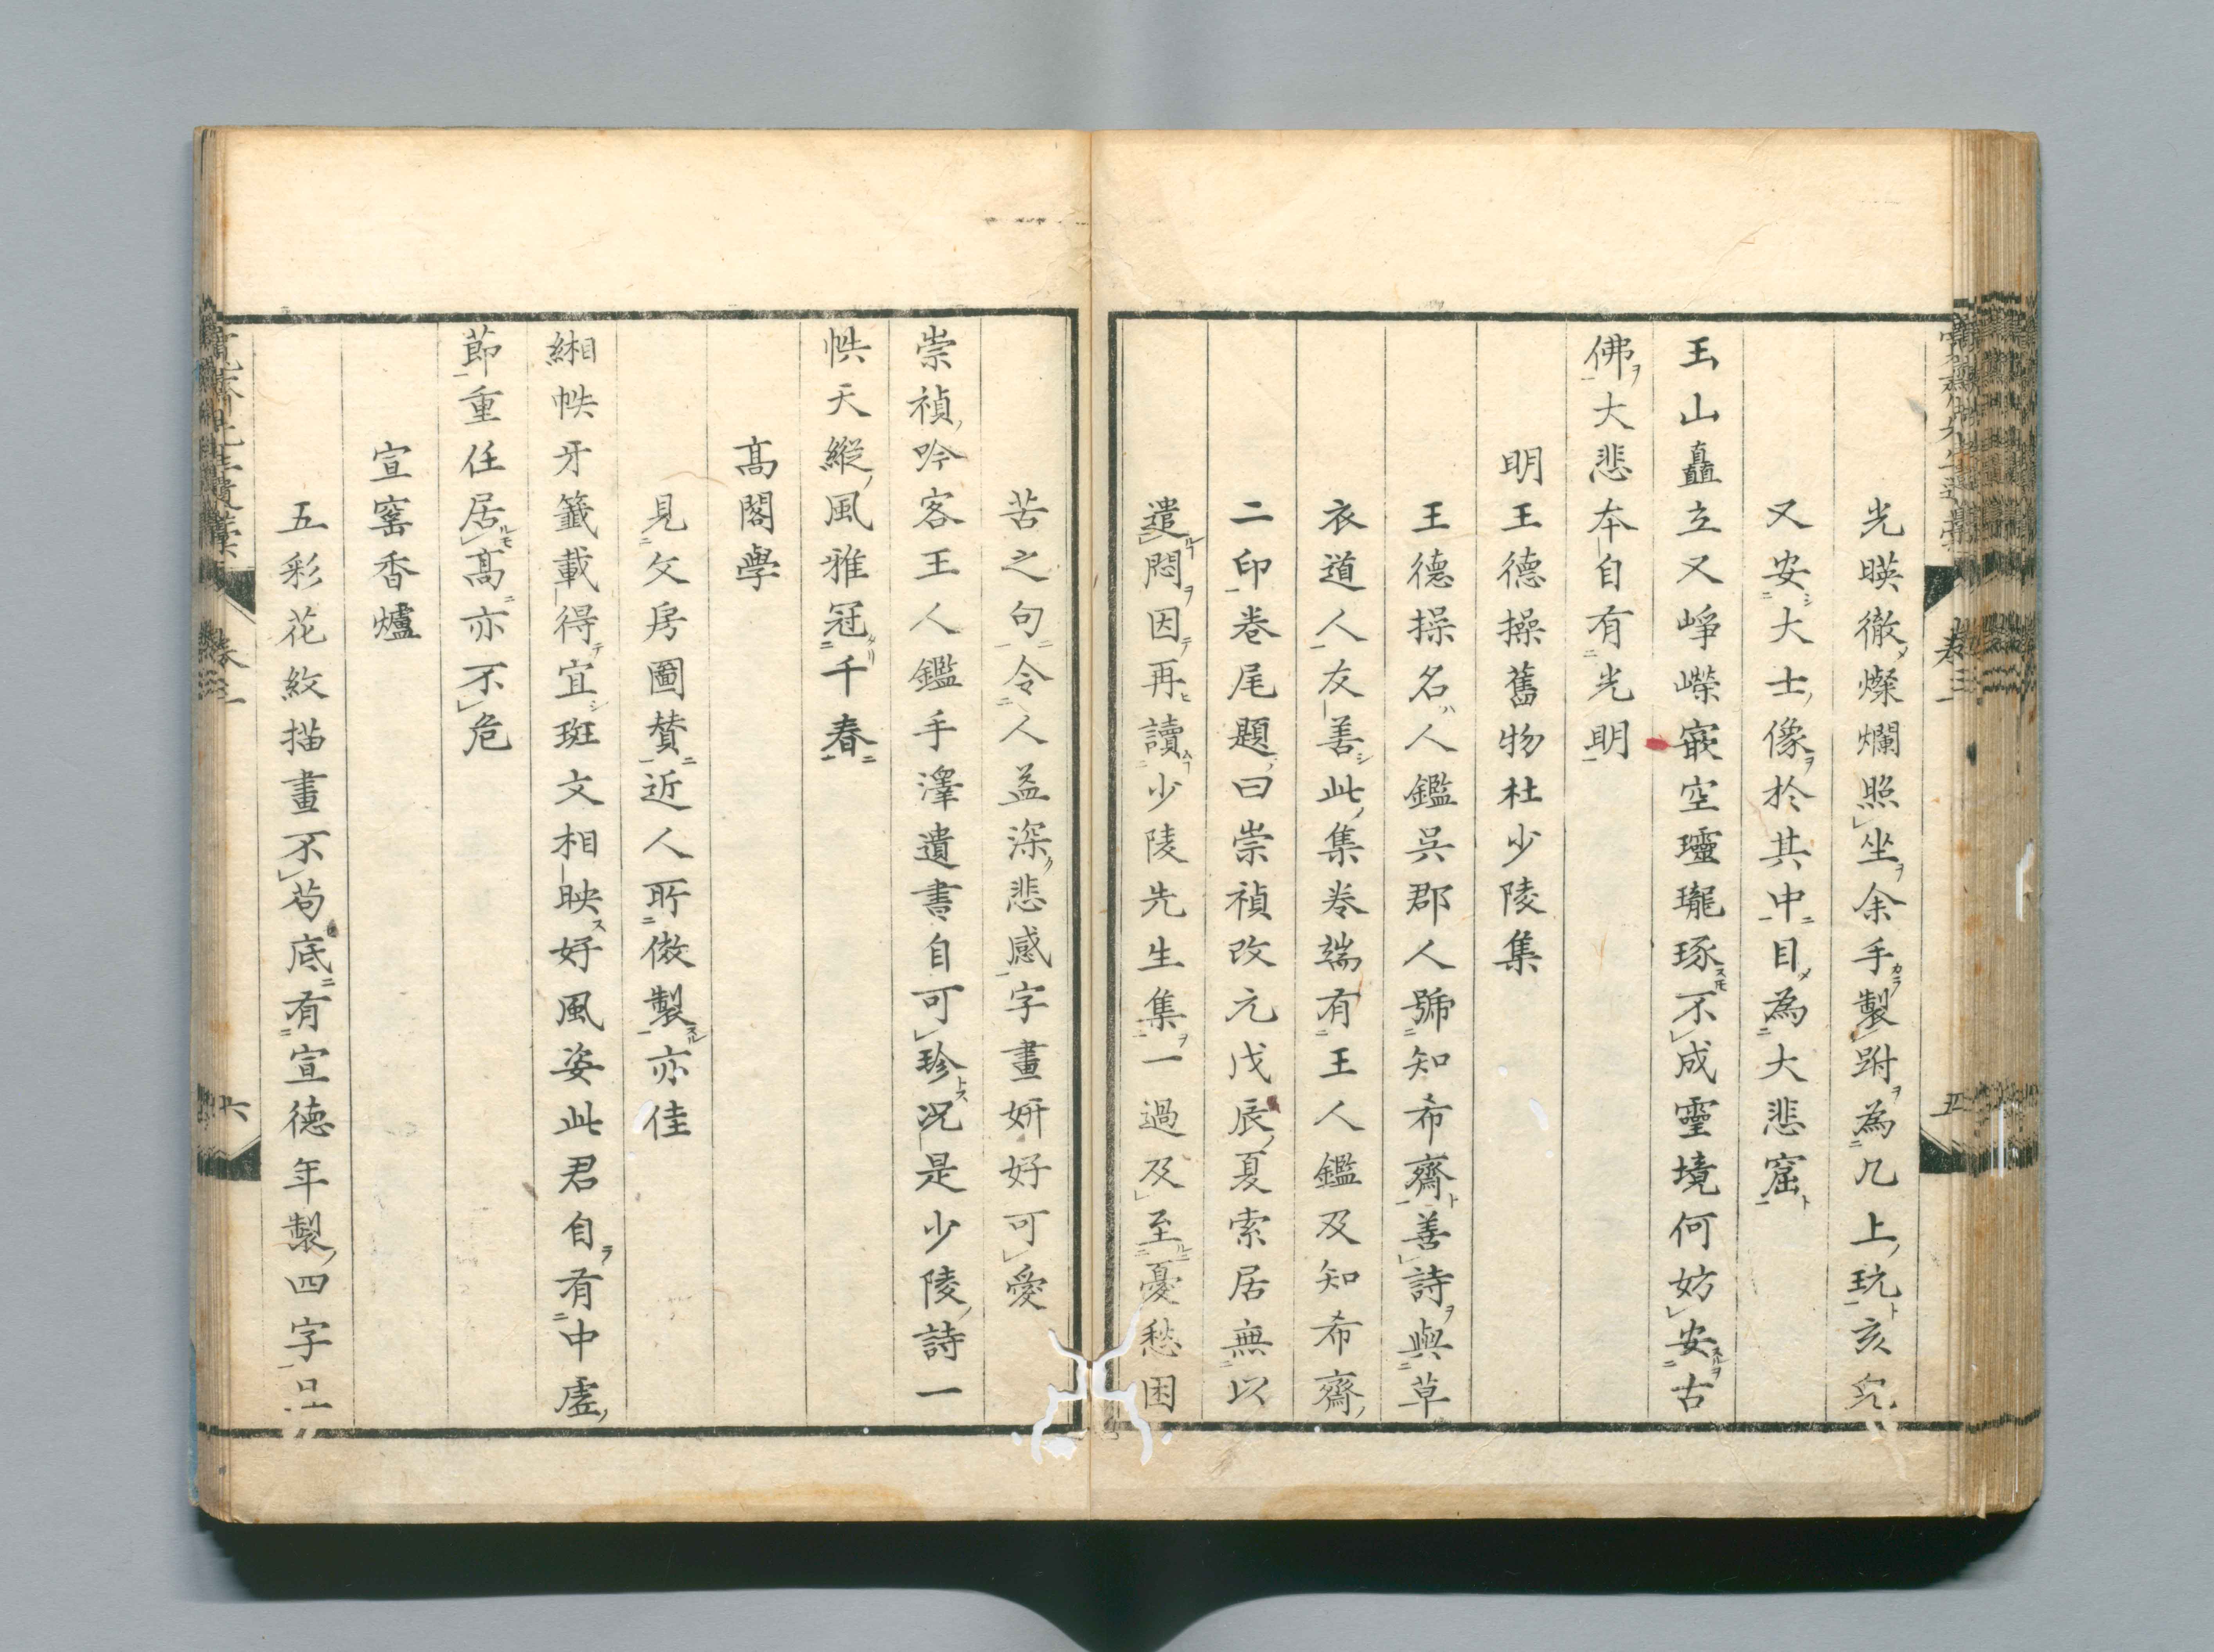 光暎徹燦爛照坐余手製跗為几上玩亥兒
又安大士像於其中目為大悲窟
玉山矗立又崢嶸嵌空瓏瓏琢不成靈境何妨安古
佛大悲本自有光明
明王德操舊物杜少陵集
王德操名人鑑吳郡人號知希齋善詩與草
衣道人友善此集卷端有王人鑑及知希齋
二印卷尾題曰崇禎改元戊辰夏索居無以
遣悶因再讀少陵先生集一過及至憂愁困
苦之句令人益深悲感字畫妍好可愛
崇禎吟客王人鑑手澤遺書自可珍況是少陵詩一
帙天縱風雅冠千春
高閣學
見文房圖賛近人所倣製亦佳
緗帙牙籤載得宜斑文相映好風姿此君自有中虛
節重任居高亦不危
宣窰香爐
五彩花紋描畫不苟底有宣德年製四字
卷三
六